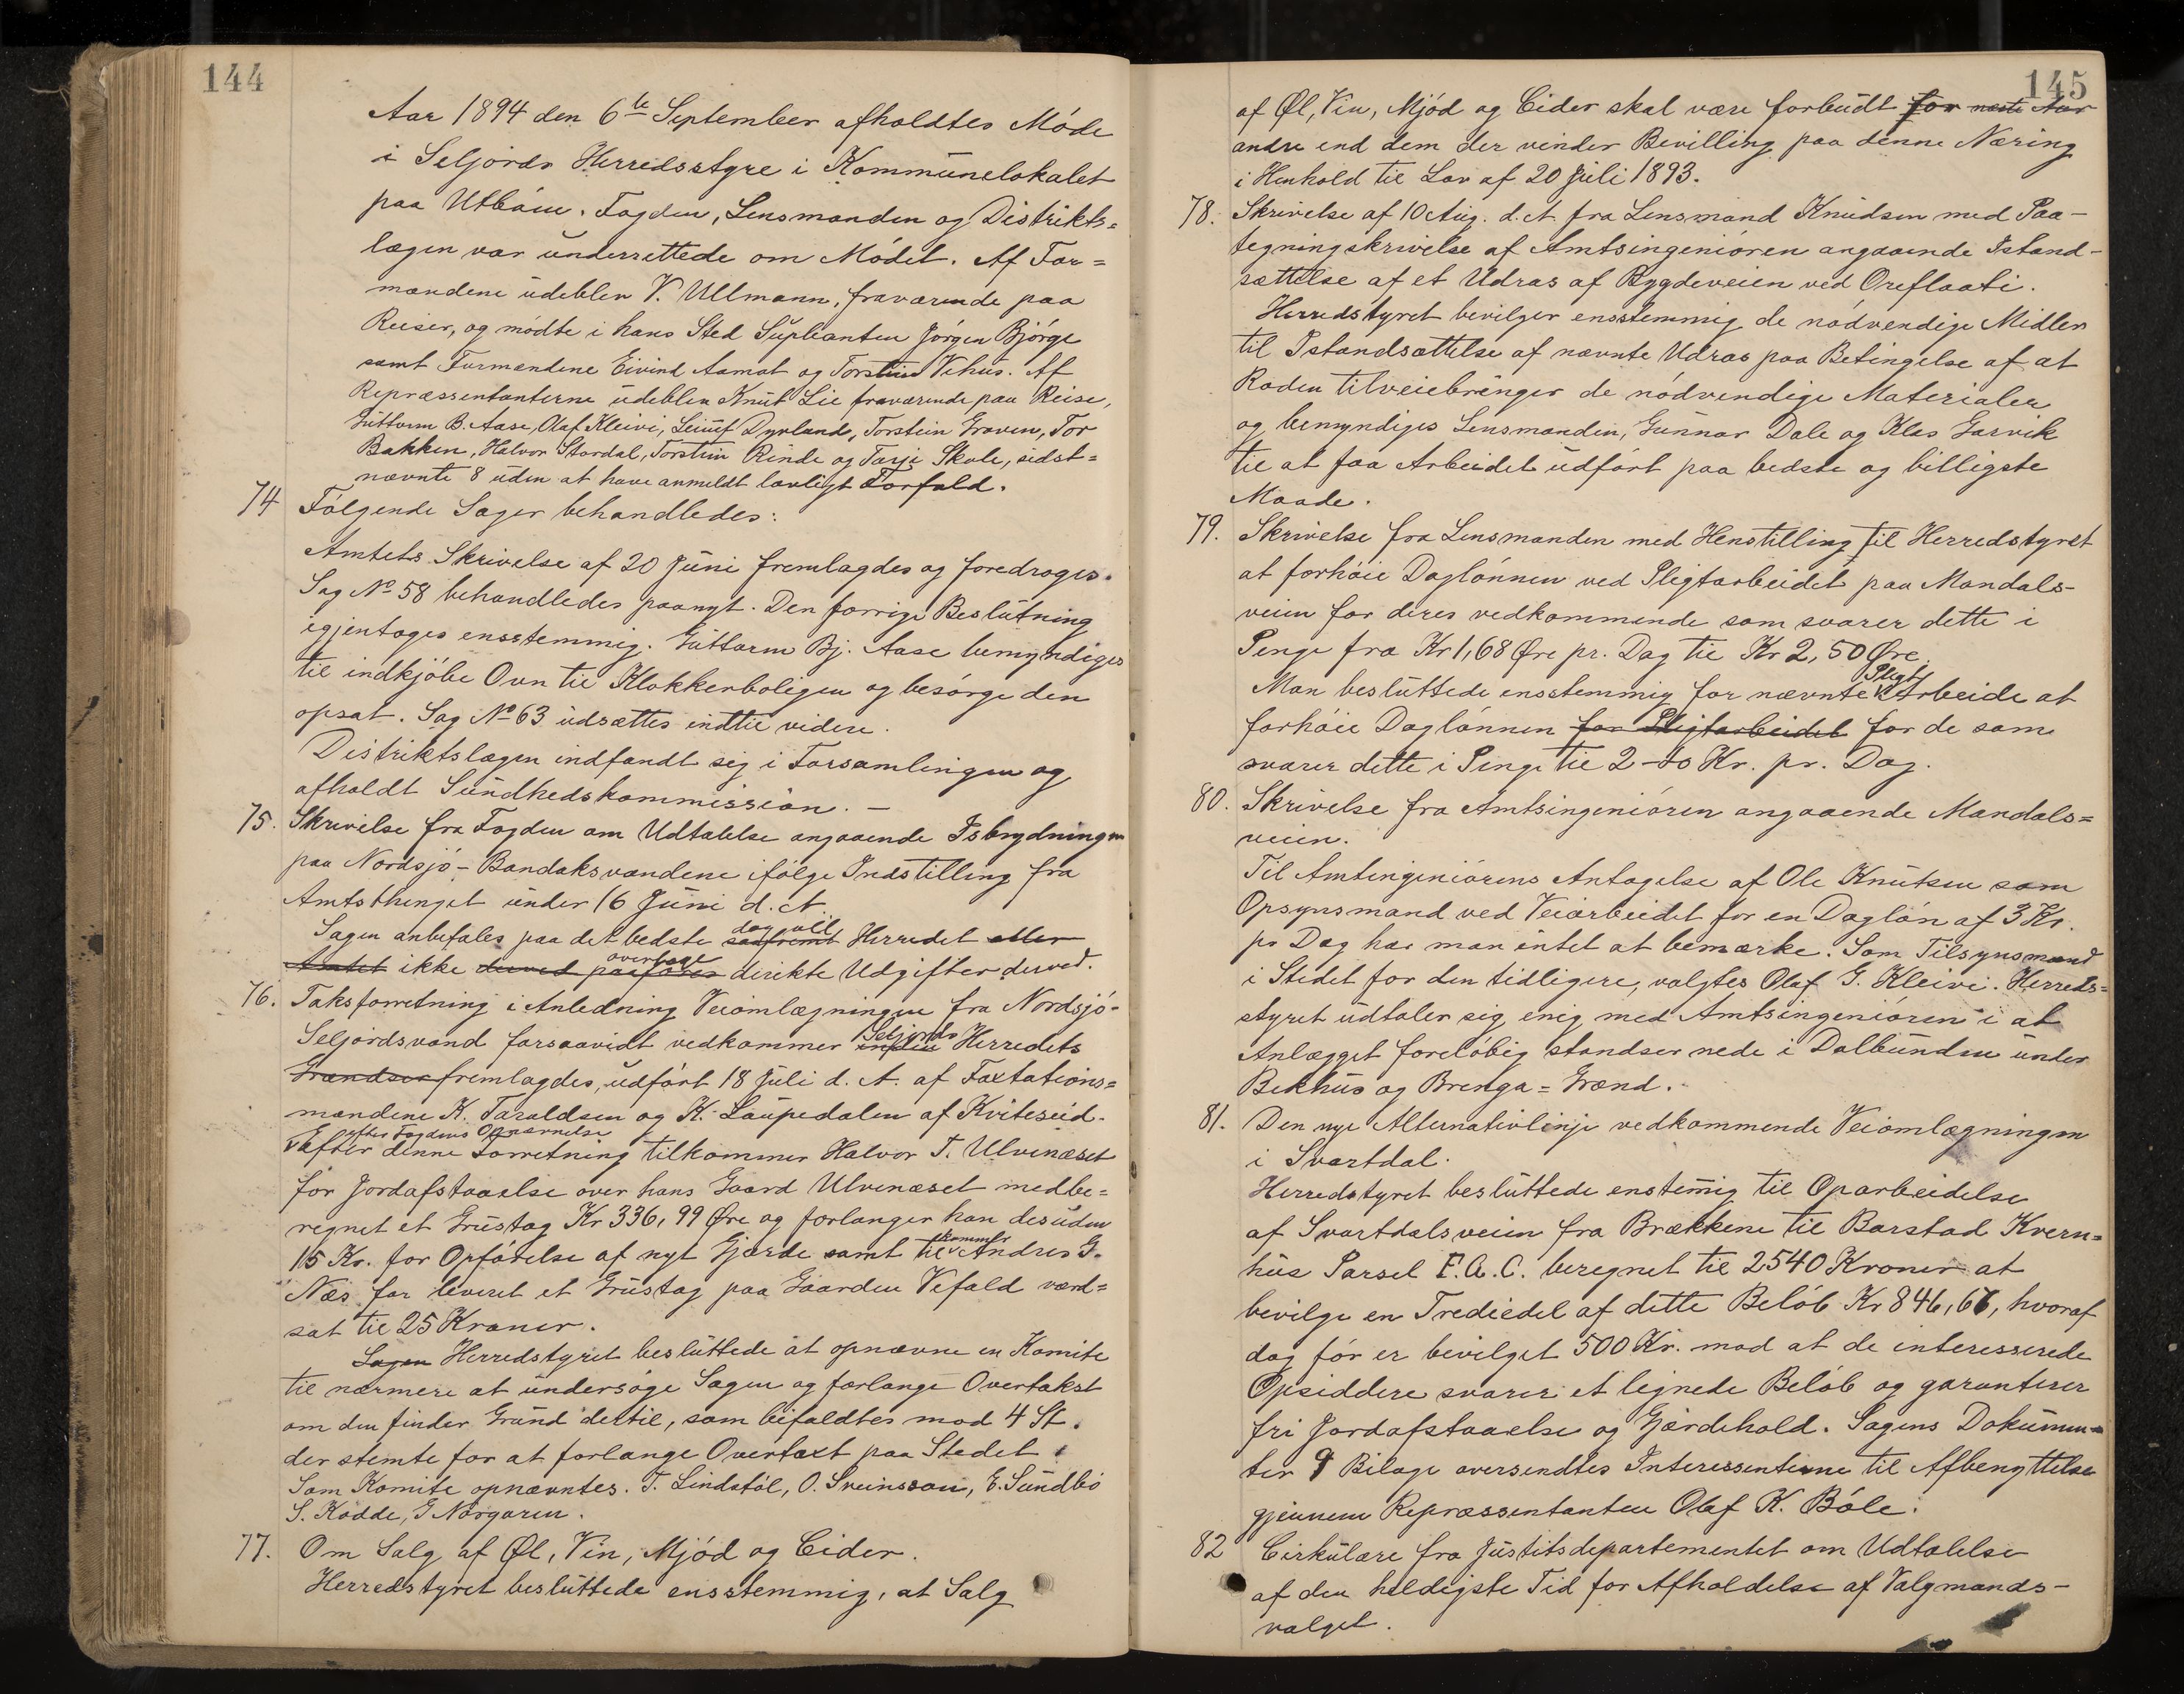 144
Aar 1894 den 6te September afholdtes Móde
i Seljords Herredsstyre i Kommünelokalet
paa Utbóen. Fogden, Lensmanden og Distrikts=
lægen var ünderrettede om Módet. Af For=
mændene üdeblev V. Ullmann, fraværende paa
Reiser, og módte i hans Sted Süpleanten Jórgen Bjórge
samt Formændene Eivind Aamot og Torstein Vehüs. Af
Repræssentanterne üdeblev Knüt Lie fraværende paa Reise,
Güttorm B. Aase, Olaf Kleivi, Leiüf Dyrland, Torstein Graven, Tor
Bakken, Halvor Stordal, Torstein Rinde og Tarje Skole, sidst=
nævnte 8 üden at have anmeldt lovligt Forfald.
74 Fólgende Sager behandledes:
Amtets Skrivelse af 20 Jüni fremlagdes og foredroges.
Sag No 58 behandledes paanyt. Den forrige Beslütning
igjentoges ensstemmig. Güttorm Bj. Aase bemyndiges
til indkjóbe Ovn til Klokkerboligen og besórge den
opsat. Sag No 63 üdsættes indtil videre.
Distriktslægen indfandt sig i Forsamlingen og
afholdt Sündhedskommission. —
75. Skrivelse fra Fogden om Udtalelse angaaende Isbrydningen
paa Nordsjó-Bandaksvandene ifólge Indstilling fra
Amtsthinget ünder 16 Jüni d. A.
dog vil
Sagen anbefales paa det bedste saafremt Herredet eller
overtage
Amtet ikke derved paaføres direkte Udgifter derved.
76. Taksforretning i Anledning Veiomlægningen fra Nordsjó-
Seljords
Seljordsvand forsaavidt vedkommer inden Herredets
Grændser fremlagdes, üdfórt 18 Jüli d. A. af Taxtations=
mændene K. Taraldsen og K. Laüpedalen af Kviteseid.
efter Fogdens Opnævnelse
Efter denne Forretning tilkommer Halvor T. Ulvenæset
for Jordafstaaelse over hans Gaard Ulvenæset medbe=
regnet et Grüstag Kr 336,99 Øre og forlanger han desüden
kommer
15 Kr. for Opfórelse af nyt Gjærde samt til Andres G.
Næs for leveret et Grüstag paa Gaarden Vefald værd=
sat til 25 Kroner.
Sagen Herredstyret beslüttede at opnævne en Komite
til nærmere at ündersóge Sagen og forlange Overtakst
om den finder Gründ dertil, som bifaldtes mod 4 St.
der stemte for at forlange Overtaxt paa Stedet.
Som Komite opnævntes. T. Lindstól, O. Sveinsson, E. Sündbó
S. Kódde, G Norgaren.
77. Om Salg af Øl, Vin, Mjód og Cider.
Herredstyret beslüttede ensstemmig, at Salg
145
af Øl, Vin, Mjód og Cider skal være forbüdt for næste Aar
andre end dem der vinder Bevilling paa denne Næring
i Henhold til Lov af 20 Jüli 1893.
78. Skrivelse af 10 Aüg. d. A. fra Lensmand Knüdsen med Paa-
tegningskrivelse af Amtsingenióren angaaende Istand-
sættelse af et Udras af Bygdeveien ved Oreflaati.
Herredstyret bevilger ensstemmig de nódvendige Midler
til Istandsættelse af nævnte Udras paa Betingelse af at
Roden tilveiebringer de nódvendige Materialer,
og bemyndiges Lensmanden, Günnar Dale og Klas Garvik
til at faa Arbeidet üdfórt paa bedste og billigste
Maade.
79. Skrivelse fra Lensmanden med Henstilling til Herredstyret
at forhóie Daglónnen ved Pligtarbeidet paa Mandals-
veien for deres vedkommende som svarer dette i
Penge fra Kr 1,68 Øre pr. Dag til Kr 2,50 Øre.
Pligt
Man beslüttede ensstemmig for nævnte Arbeide at
forhóie Daglónnen for Pligtarbeidet for de som
svarer dette i Penge til 2 – to Kr. pr. Dag.
80. Skrivelse fra Amtsingenióren angaaende Mandals=
veien.
Til Amtingeniórens Antagelse af Ole Knütsen som
Opsynsmand ved Veiarbeidet for en Daglón af 3 Kr.
pr Dag har man intet at bemærke. Som Tilsynsmand
i Stedet for den tidligere, valgtes Olaf G. Kleivi. Herreds=
styret üdtaler sig enig med Amtsingenióren i at
Anlægget forelóbig standser nede i Dalbünden ünder
Bekhüs og Brenga=Grænd.
81. Den nye Alternativlinje vedkommende Veiomlægningen
i Svartdal.
Herredstyret beslüttede enstemig til Oparbeidelse
af Svartdalsveien fra Brækkene til Barstad Kvern=
hüs Parsel F. A. C. beregnet til 2540 Kroner at
bevilge en Trediedel af dette Belób Kr 846,66, hvoraf
dog fór er bevilget 500 Kr. mod at de interesserede
Opsiddere svarer et lignede Belób og garanterer
fri Jordafstaaelse og Gjærdehold. Sagens Dokümen=
ter 9 Bilage oversendtes Interessenterne til Afbenyttelse
gjennem Repræssentanten Olaf K. Bóle.
82 Cirkülære fra Jüstitsdepartementet om Udtalelse
af den heldigste Tid for Afholdelse af Valgmands-
valget.